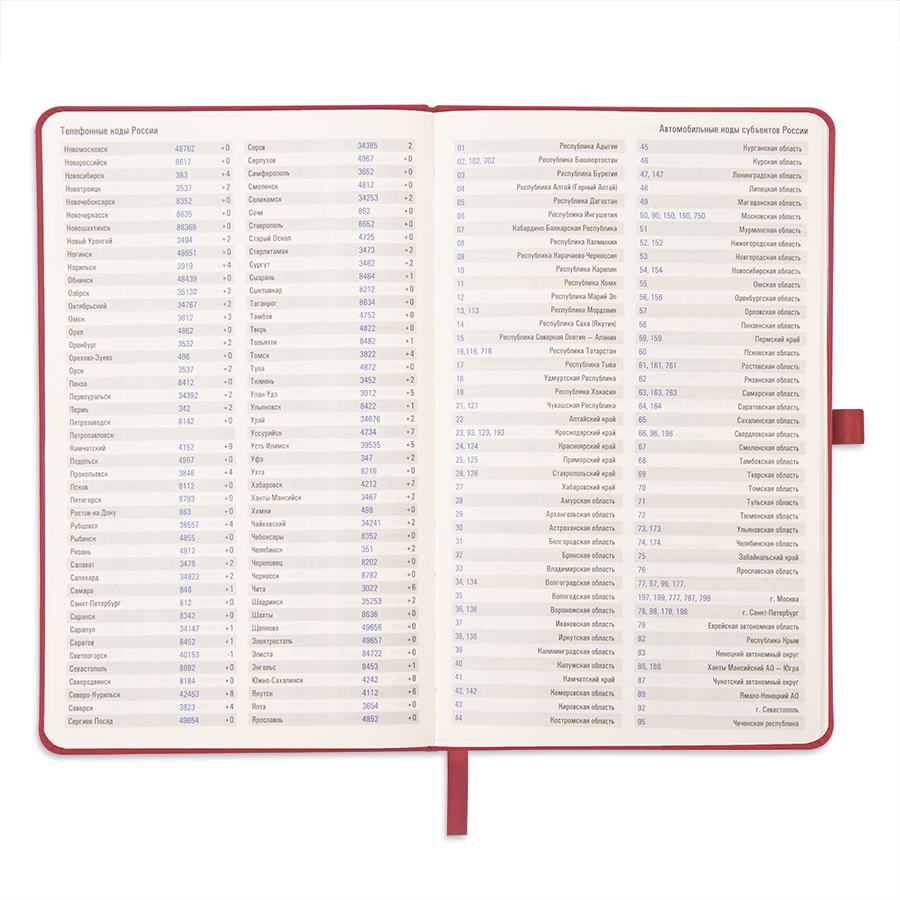 Телефонные коды России
Новомосковск 48762 +0
Новороссийск 8617 +0
Новосибирск 383 +4
Новотроицк 3537 +2
Новочебоксарск 8352 +0
Новочеркасск 8635 +0
Новошахтинск 86369 +0
Новый Уренгой 3494 +2
Ногинск 49651 +0
Норильск 3919 +4
Обнинск 48439 +0
Озёрск 35130 +2
Октябрьский 34767 +2
Омск 3812 +3
Орел 4862 +0
Оренбург 3532 +2
Орехово-Зуево 496 +0
Орск 3537 +2
Пенза 8412 +0
Первоуральск 34392 +2
Пермь 342 +2
Петрозаводск 8142 +0
Петропавловск-
Камчатский 4152 +9
Подольск 4967 +0
Прокопьевск 3846 +4
Псков 8112 +0
Пятигорск 8793 +0
Ростов-на-Дону 863 +0
Рубцовск 38557 +4
Рыбинск 4855 +0
Рязань 4912 +0
Салават 3476 +2
Салехард 34922 +2
Самара 846 +1
Санкт-Петербург 812 +0
Саранск 8342 +0
Сарапул 34147 +1
Саратов 8452 +1
Светлогорск 40153 -1
Севастополь 8692 +0
Северодвинск 8184 +0
Северо-Курильск 42453 +8
Северск 3823 +4
Сергиев Посад 49654 +0
Серов 34385 2
Серпухов 4967 +0
Симферополь 3652 +0
Смоленск 4812 +0
Соликамск 34253 +2
Сочи 862 +0
Ставрополь 8652 +0
Старый Оскол 4725 +0
Стерлитамак 3473 +2
Сургут 3462 +2
Сызрань 8464 +1
Сыктывкар 8212 +0
Таганрог 8634 +0
Тамбов 4752 +0
Тверь 4822 +0
Тольятти 8482 +1
Томск 3822 +4
Тула 4872 +0
Тюмень 3452 +2
Улан-Удэ 3012 +5
Ульяновск 8422 +1
Урай 34676 +2
Уссурийск 4234 +7
Усть-Илимск 39535 +5
Уфа 347 +2
Ухта 8216 +0
Хабаровск 4212 +7
Ханты-Мансийск 3467 +2
Химки 498 +0
Чайковский 34241 +2
Чебоксары 8352 +0
Челябинск 351 +2
Череповец 8202 +0
Черкесск 8782 +0
Чита 3022 +6
Шадринск 35253 +2
Шахты 8636 +0
Щелково 49656 +0
Электросталь 49657 +0
Элиста 84722 +0
Энгельс 8453 +1
Южно-Сахалинск 4242 +8
Якутск 4112 +6
Ялта 3654 +0
Ярославль 4852 +0
Автомобильные коды субъектов России
01 Республика Адыгея
02, 102, 702 Республика Башкортостан
03 Республика Бурятия
04 Республика Алтай (Горный Алтай)
05 Республика Дагестан
06 Республика Ингушетия
07 Кабардино-Балкарская Республика
08 Республика Калмыкия
09 Республика Карачаево-Черкессия
10 Республика Карелия
11 Республика Коми
12 Республика Марий Эл
13, 113 Республика Мордовия
14 Республика Саха (Якутия)
15 Республика Северная Осетия — Алания
16,116, 716 Республика Татарстан
17 Республика Тыва
18 Удмуртская Республика
19 Республика Хакасия
21, 121 Чувашская Республика
22 Алтайский край
23, 93, 123, 193 Краснодарский край
24, 124 Красноярский край
25, 125 Приморский край
26, 126 Ставропольский край
27 Хабаровский край
28 Амурская область
29 Архангельская область
30 Астраханская область
31 Белгородская область
32 Брянская область
33 Владимирская область
34, 134 Волгоградская область
35 Вологодская область
36, 136 Воронежская область
37 Ивановская область
38, 138 Иркутская область
39 Калининградская область
40 Калужская область
41 Камчатский край
42, 142 Кемеровская область
43 Кировская область
44 Костромская область
45 Курганская область
46 Курская область
47, 147 Ленинградская область
48 Липецкая область
49 Магаданская область
50, 90, 150, 190, 750 Московская область
51 Мурманская область
52, 152 Нижегородская область
53 Новгородская область
54, 154 Новосибирская область
55 Омская область
56, 156 Оренбургская область
57 Орловская область
58 Пензенская область
59, 159 Пермский край
60 Псковская область
61, 161, 761 Ростовская область
62 Рязанская область
63, 163, 763 Самарская область
64, 164 Саратовская область
65 Сахалинская область
66, 96, 196 Свердловская область
67 Смоленская область
68 Тамбовская область
69 Тверская область
70 Томская область
71 Тульская область
72 Тюменская область
73, 173 Ульяновская область
74, 174 Челябинская область
75 Забайкальский край
76 Ярославская область
77, 97, 99, 177,
197, 199, 777, 797, 799 г. Москва
78, 98, 178, 198 г. Санкт-Петербург
79 Еврейская автономная область
82 Республика Крым
83 Ненецкий автономный округ
86, 186 Ханты-Мансийский АО — Югра
87 Чукотский автономный округ
89 Ямало-Ненецкий АО
92 г. Севастополь
95 Чеченская республика